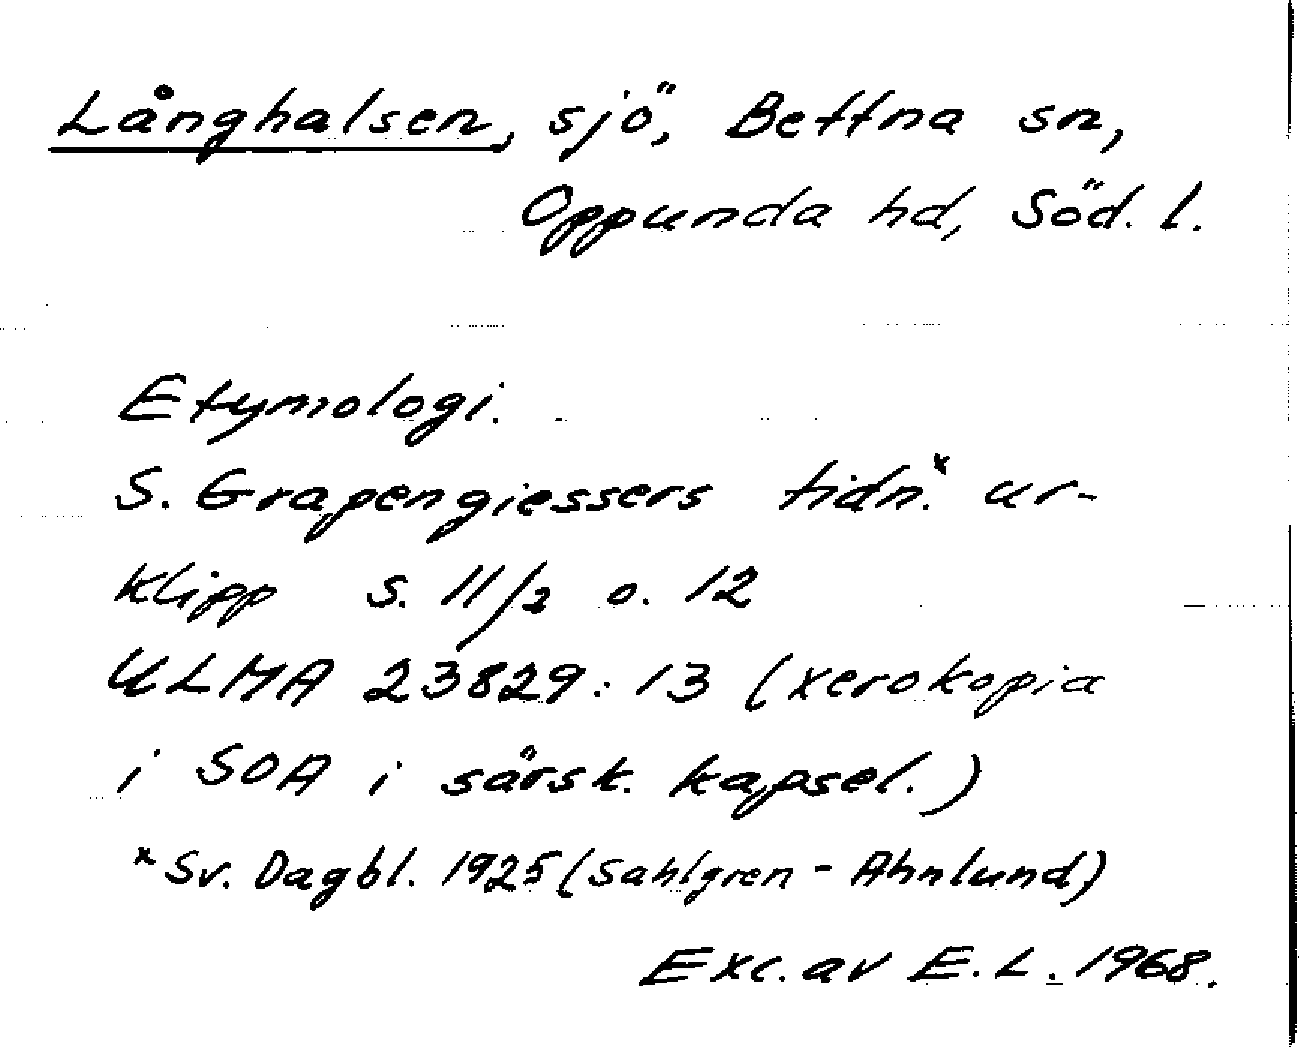 Långhalsen, sjö, Bettna sn,
Oppunda hd, Söd. l.
Etymologi.
S. Grapengiessers tidn.* ur-
klipp s. 11/2 o. 12
ULMA 23829:13 (xerokopia
i SOA i särsk. kapsel.)
*Sv. Dagbl. 1925 (Sahlgren - Ahnlund)
Exc. av E.L. 1968.